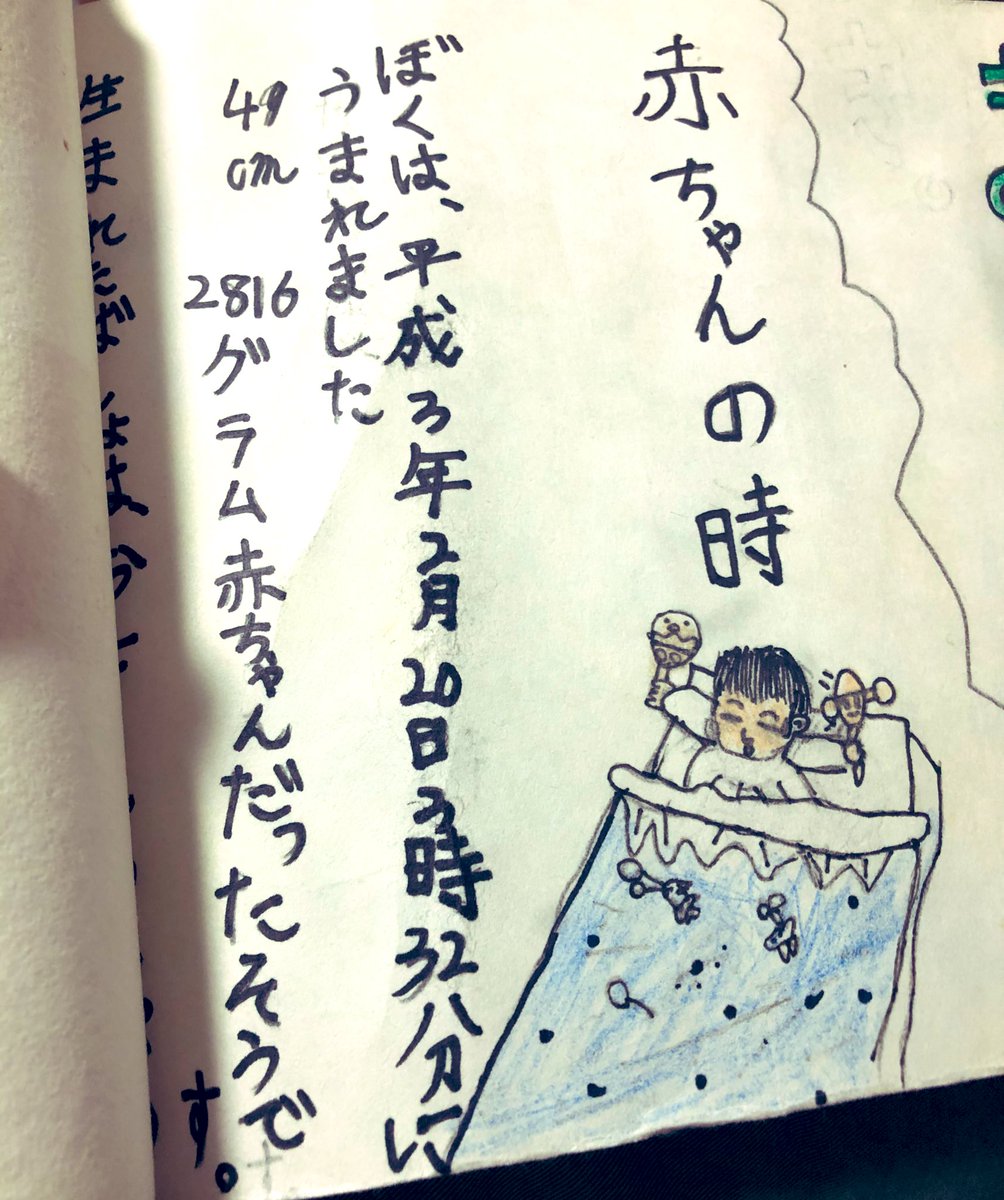 赤ちゃんの時
ぼくは、平成3年2月26日3時32分に
うまれました
49cm 2816グラム赤ちゃんだったそうです。
生まれたば